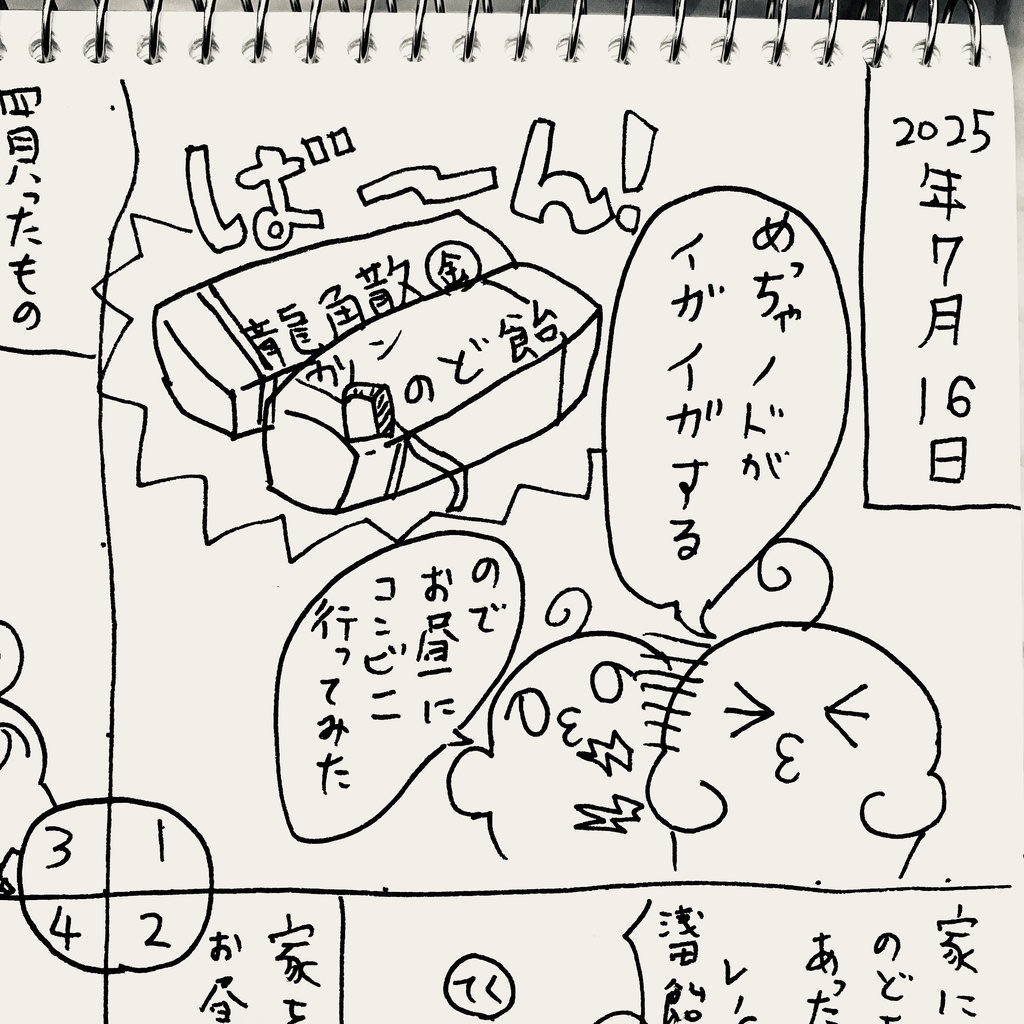 2025年7月16日
めっちゃノドが
イガイガする
ば〜ん!
龍角散 金
カリン
のど飴
ので
お昼に
コンビニ
行ってみた
買ったもの
1
2
3
4
家に
のど
あった
浅田飴
てく
家を
お昼